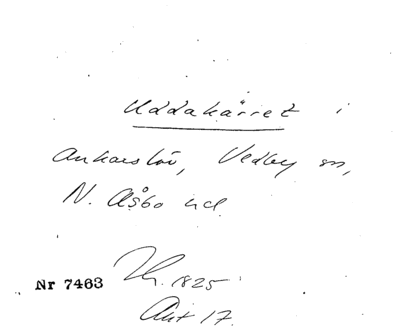 Uddakärret i
Ankarslöv, Vedby sn,
N. Åsbo hd.
Th. 1825
Nr 7463
Akt 17.